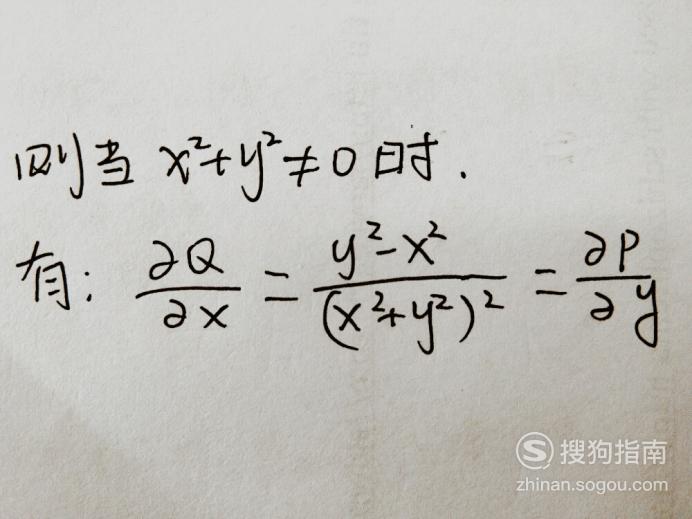 则当 x²+y²≠0时.
有: ∂Q/∂x = (y²-x²)/(x²+y²)² = ∂P/∂y
搜狗指南
zhinan.sogou.com